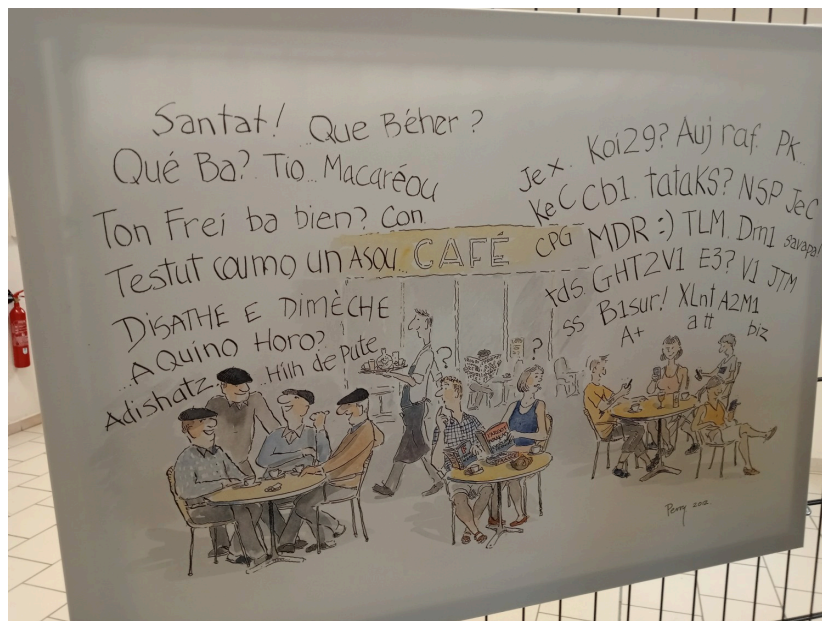 Santat! Que Béher ?
Qué Ba? Tio... Macaréou
Ton Frei ba bien? Con
Testut coumo un Asou...
DISATHE E DIMÈCHE
...A Quino Horo?
Adishatz ...Hilh de Pute
CAFÉ
?
?
Je x. Koi29? Auj raf. PK...
KeC Cb1. tataKS? NSP JeC
CPG MDR :) TLM. Dm1 savapa!
tds GHT2V1 E3? V1 JTM
ss B1sur! XLnt A2M1
A+ a tt biz
Perry 2012